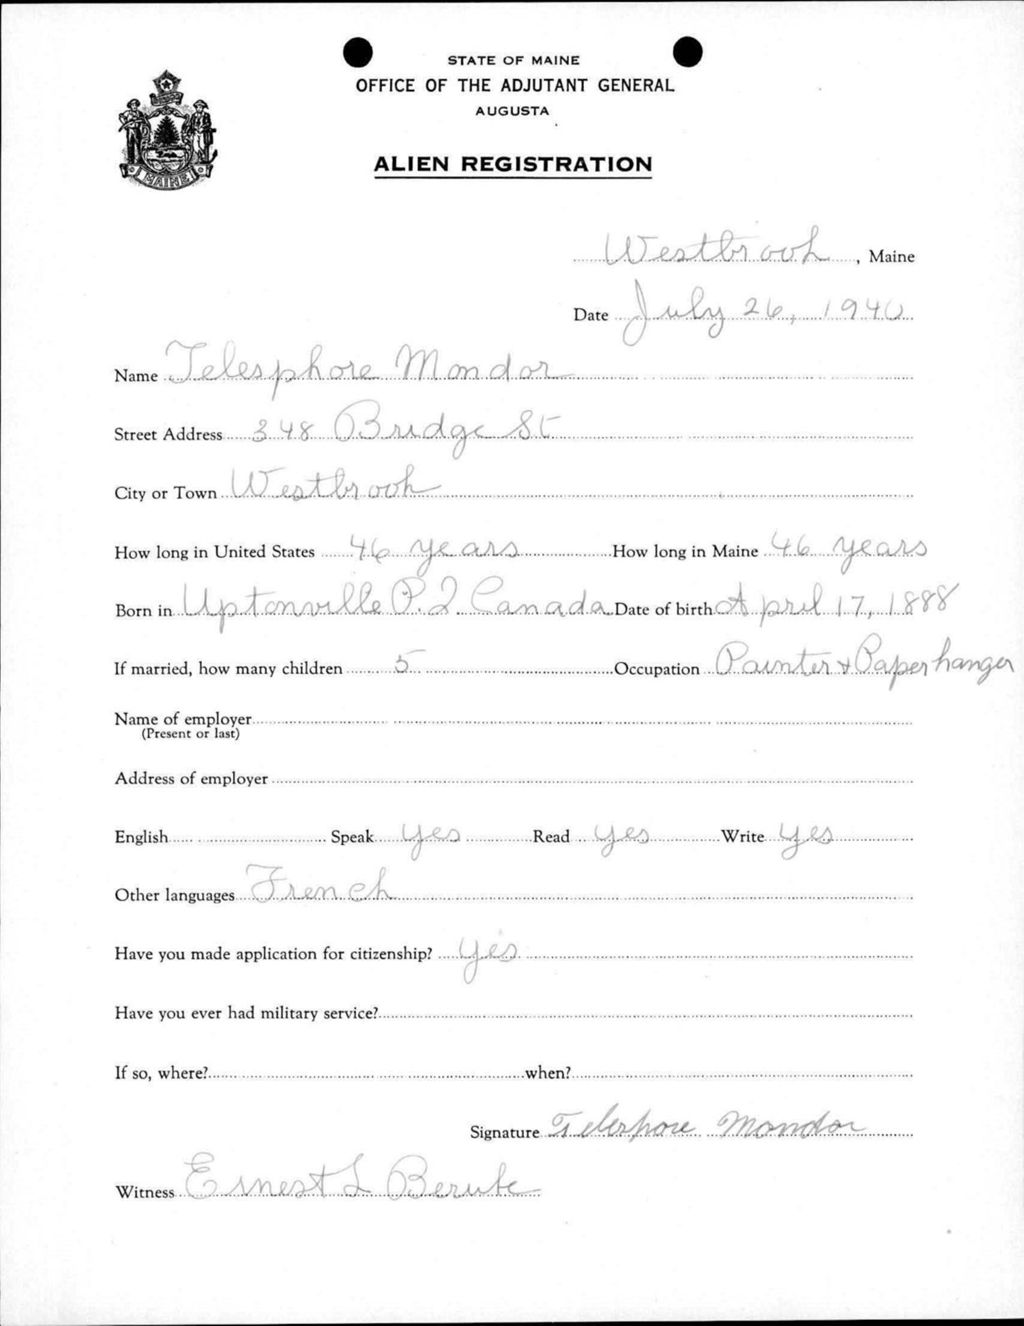 STATE OF MAINE
OFFICE OF THE ADJUTANT GENERAL
AUGUSTA
MAINE
ALIEN REGISTRATION
Westbrook, Maine
Date July 26, 1940
Name Telesphore Mondor
Street Address 348 Bridge St
City or Town Westbrook
How long in United States 46 years How long in Maine 46 years
Born in Uptonville P.Q Canada Date of birth April 17, 1888
If married, how many children 5 Occupation Painter + Paperhanger
Name of employer
(Present or last)
Address of employer
English Speak yes Read yes Write yes
Other languages French
Have you made application for citizenship? yes
Have you ever had military service?
If so, where? when?
Signature Telesphore Mondor
Witness Ernest L